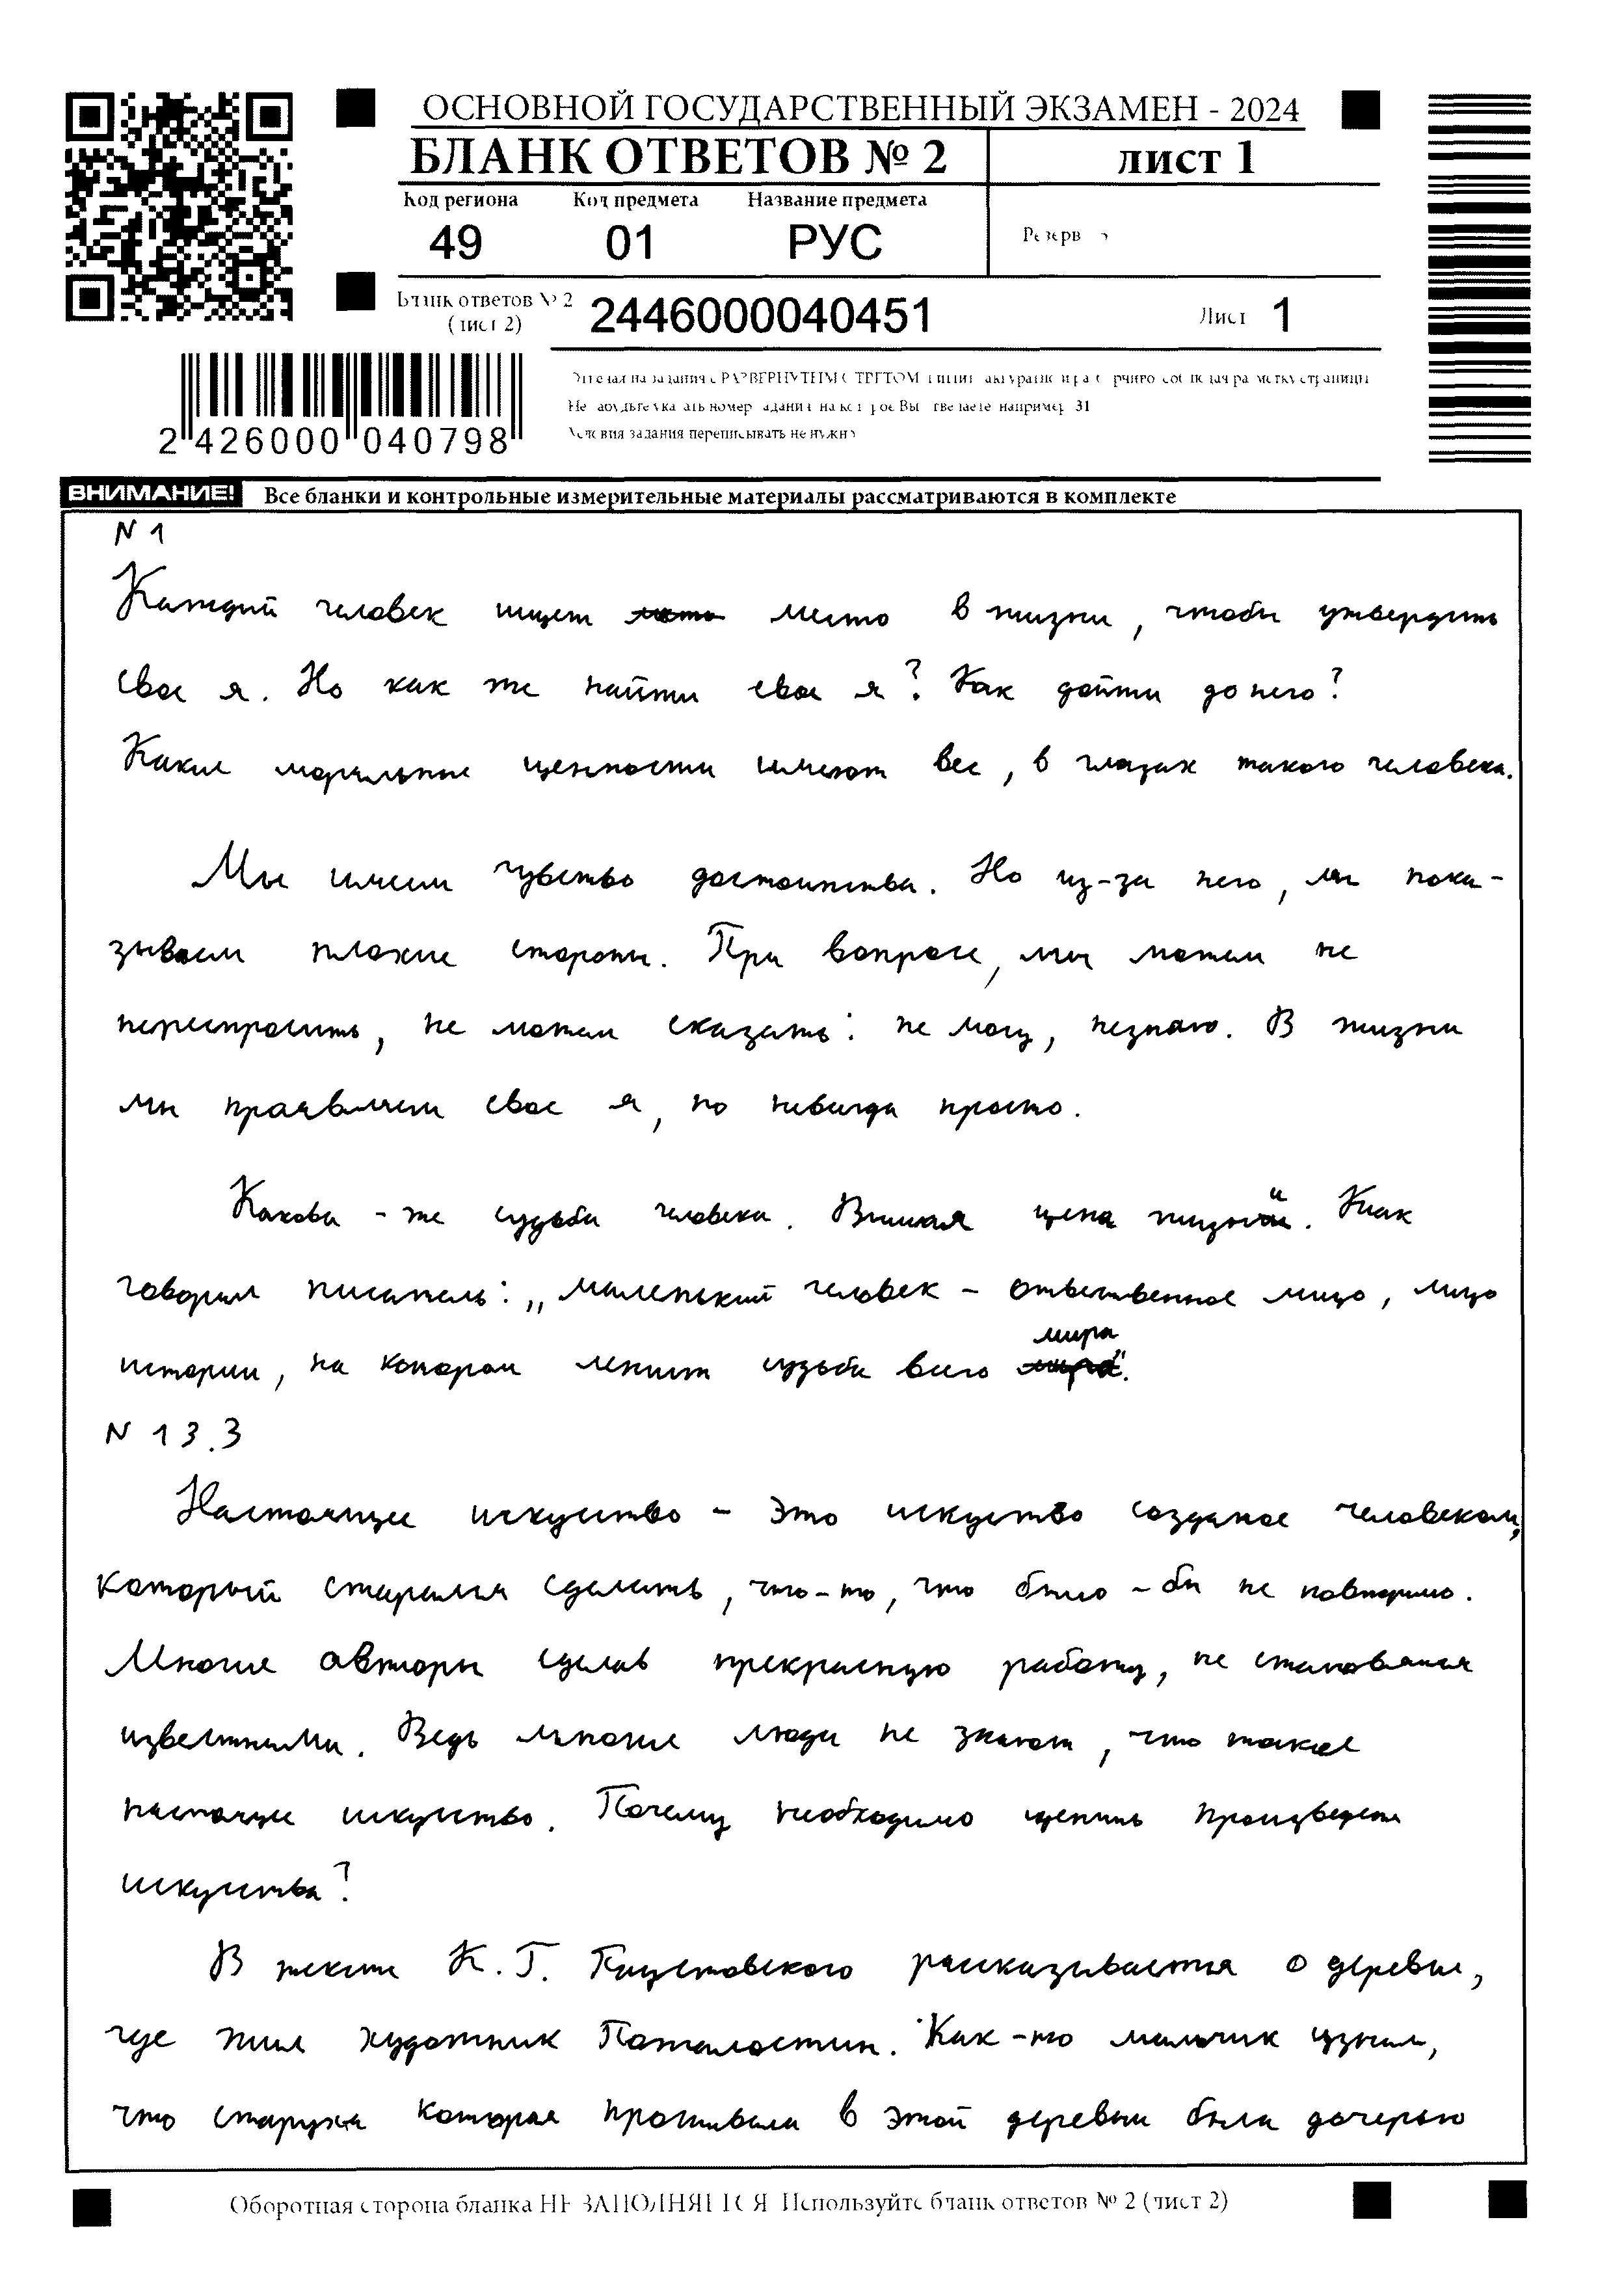 ОСНОВНОЙ ГОСУДАРСТВЕННЫЙ ЭКЗАМЕН - 2024
БЛАНК ОТВЕТОВ № 2
лист 1
Код региона Код предмета Название предмета
49 01 РУС
Резерв
Бланк ответов № 2
(лист 2)
2446000040451
Лист 1
2 426000 040798
Условия задания переписывать не нужно
ВНИМАНИЕ! Все бланки и контрольные измерительные материалы рассматриваются в комплекте
N 1
Каждый человек ищет место в жизни, чтобы утвердить
свое я. Но как же найти свое я? Как дойти до него?
Какие моральные ценности имеют вес, в глазах такого человека.
Мы имеем чувство достоинства. Но из-за него, мы пока-
зываем плохие стороны. При вопросе, мы можем не
переспросить, не можем сказать: не могу, незнаю. В жизни
мы проявляем свое я, но невсегда просто.
Какова - же судьба человека. Высшая цена жизни. Как
говорил писатель: „маленький человек - ответственное лицо, лицо
истории, на котором лежит судьба всего мира".
N 13.3
Настоящее искуство - это искуство созданое человеком,
который старался сделать, что-то, что было - бы не повторимо.
Многие авторы сделав прекрасную работу, не становятся
известными. Ведь многие люди не знают, что такое
настоящее искуство. Почему необходимо ценить
искуства?
В тексте К. Г. Паустовского рассказывается о деревне,
где жил художник Пожалостин. Как-то мальчик узнал,
что старуха которая проживала в этой деревни была дочерью
Оборотная сторона бланка НЕ ЗАПОЛНЯЕТСЯ. Используйте бланк ответов № 2 (лист 2)